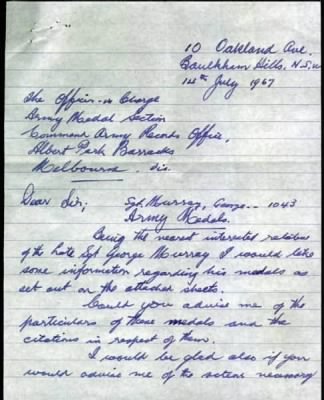 10 Oakland Ave.
Baulkham Hills. N.S.W
14th July 1967
The Officer in Charge
Army Medal Section
Command Army Records Office,
Albert Park Barracks
Melbourne. Vic.
Dear Sir; Sgt. Murray, George -- 1043
Army Medals.
Being the nearest interested relative
of the late Sgt George Murray I would like
some information regarding his medals as
set out on the attached sheets.
Could you advise me of the
particulars of these medals and the
citations in respect of them.
I would be glad also if you
would advise me of the action necessary